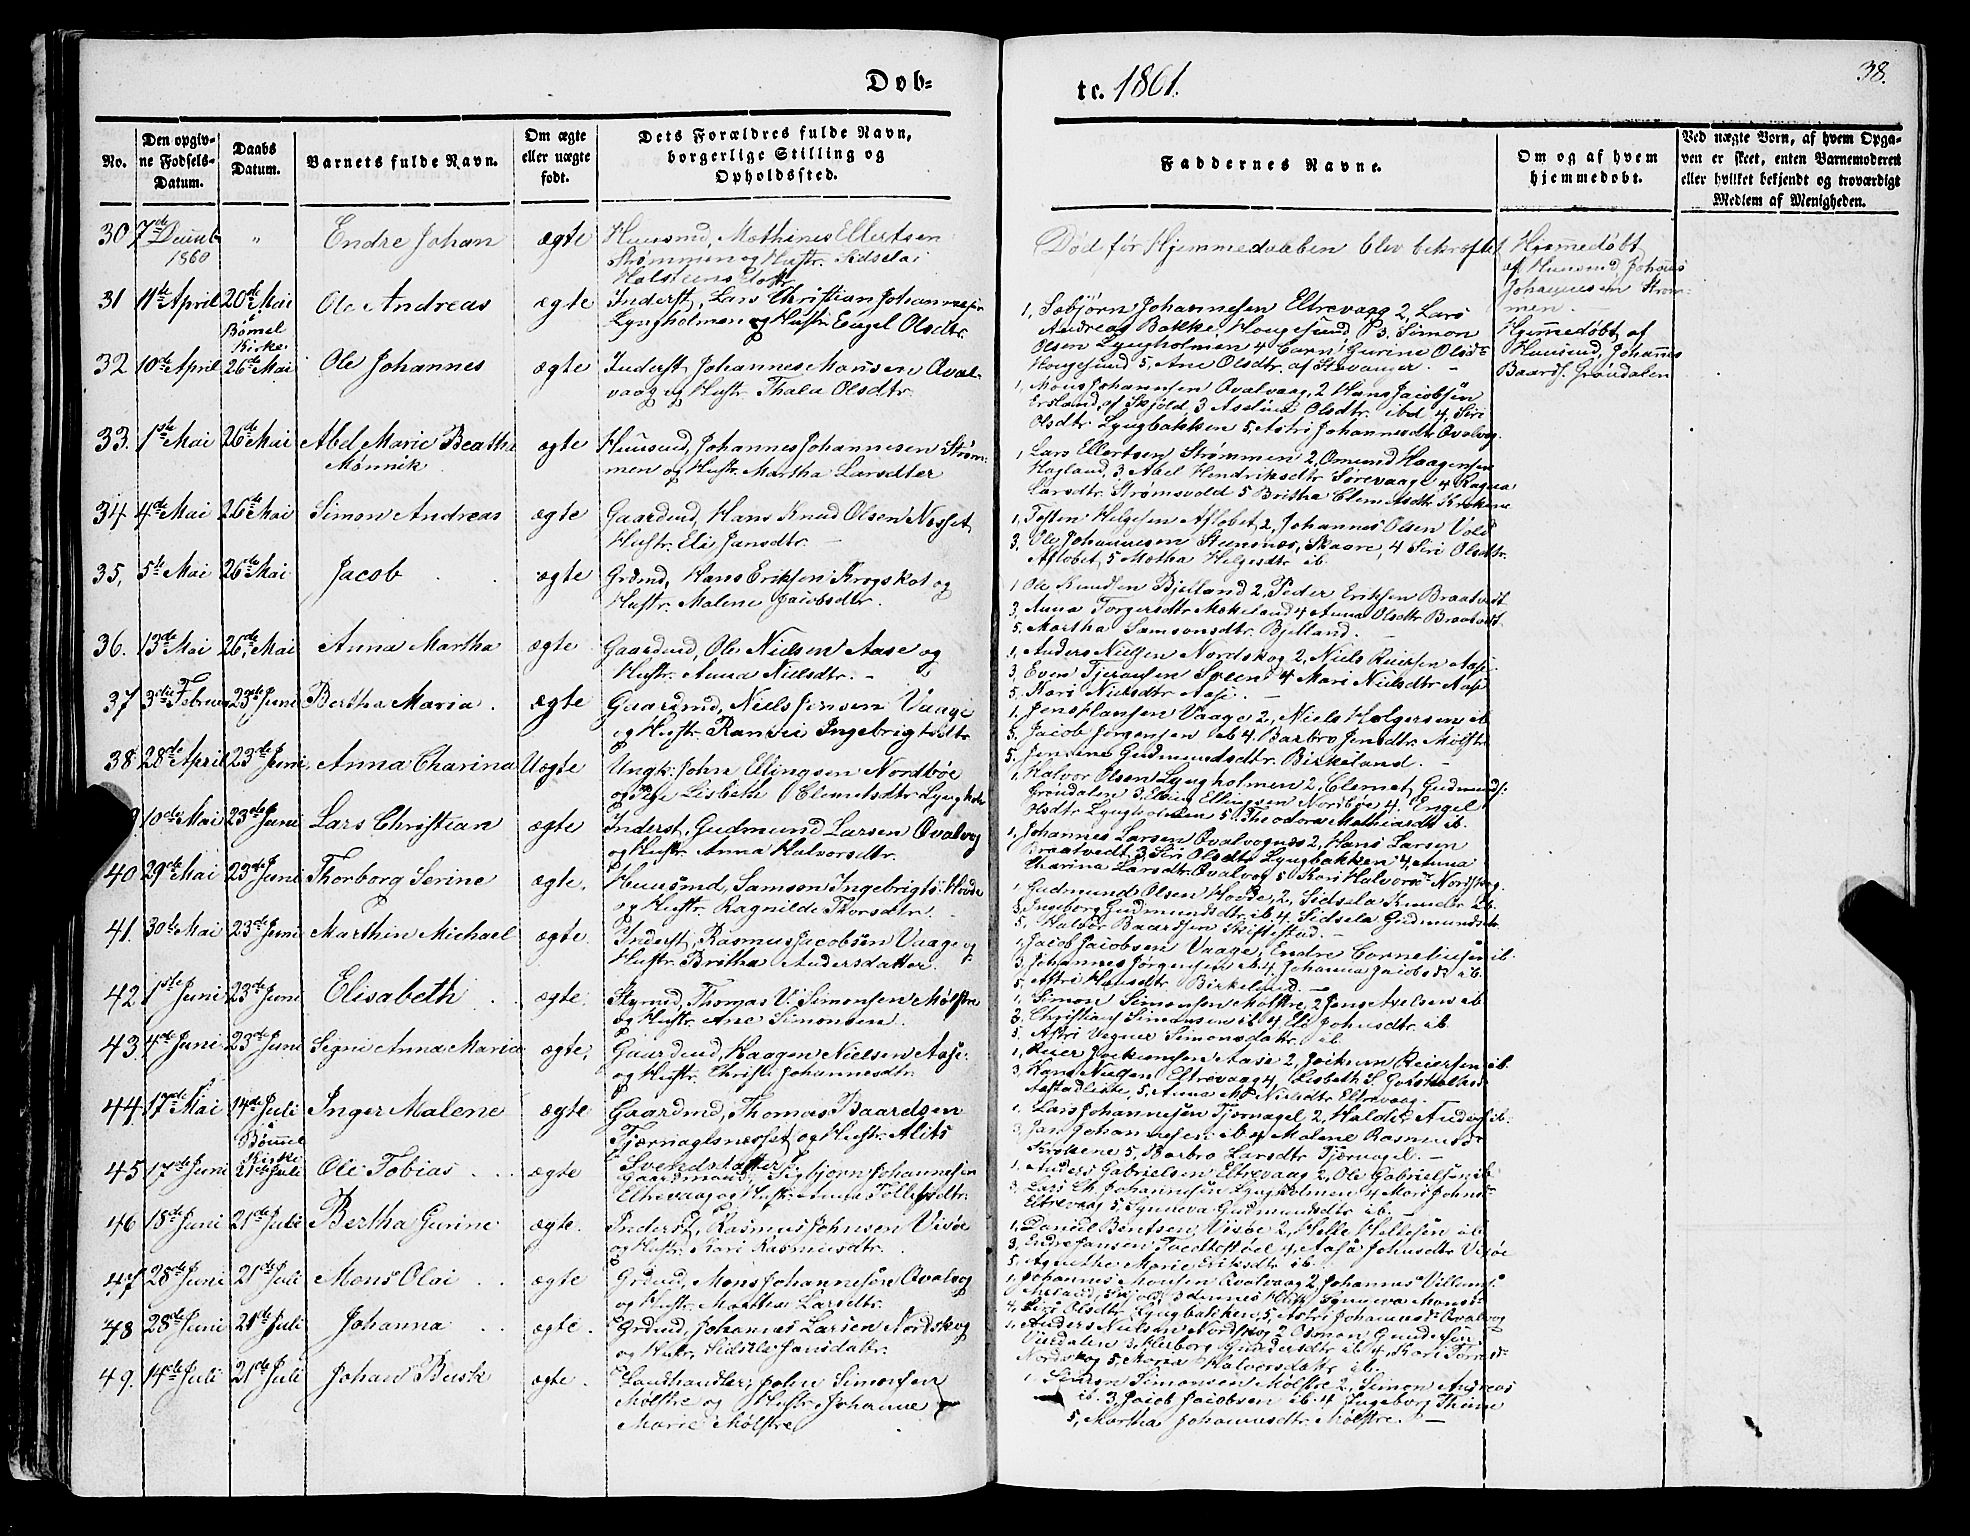 Døb-
te. 1861.
38.
No.
Den opgiv-
ne Fødsels-
Datum.
Daabs
Datum.
Barnets fulde Navn.
Om ægte
eller uægte
født.
Dets Forældres fulde Navn,
borgerlige Stilling og
Opholdssted.
Faddernes Navne.
Om og af hvem
hjemmedøbt.
Ved uægte Børn, af hvem Opga-
ven er skeet, enten Barnemoderen
eller hvilket bekjendt og troværdigt
Medlem af Menigheden.
30 7de Decemb 1860 " Endre Johan ægte Huusmd, Mathines Ellertsen
Strømmen og Hustr. Sidsela
Død før Hjemmedaaben blev bekræftet
Hjemmedøbt
af Huusmd, Johannes
Johannesen Strøm-
men.
31 11te April 20de Mai Bømel Kirke Ole Andreas ægte Inderst, Lars Christian Johannesen
Lyngholmen og Hustr. Engel Olsdtr.
1, Sæbjörn Johannesen Eltrevaag 2, Lars
Andreas Bakke Hougesund, 3, Simon
Olsen Lyngholmen 4 Gurine Olsdr
Hougesund 5, Ane Olsdtr. af Stavanger.
32 10de April 26de Mai Ole Johannes ægte Inderst Johannes Monsen Qval-
vaag og Hustr. Thala Olsdtr.
1, Mons Johannesen Qvalvaag, 2 Hans Jacobsen
Ersland, af Skjold 3 Olsdtr. ibd 4, Siri
Olsdtr Lyngbakken 5, Astri Johannesdtr Qvalvog.
Hjemmedøbt af
Huusmd, Johannes
Baards. Grøndalen
33. 1ste Mai 26de Mai Abel Marie Beathe
Mønnik. ægte Huusmd, Johannes Johannesen Strøm-
men og Hustr. Martha Larsdtter
1, Lars Ellertsen Strømmen 2, Omund Haagensen
Hagland, 3 Abel Hendriksdtr Sørevaage 4 Ragna
Larsdtr. Strømsvold 5 Britha Clemetsdtr
34 4de Mai 26de Mai Simon Andreas ægte Gaardmd, Hans Knud Olsen Nesset,
Hustr. Eli Jansdtr.
1, Helgesen 2, Johannes Olsen Vold
3, Ole Johannesen 4 Siri Olsdtr.
5 Helgesdtr ib.
35, 5te Mai 26de Mai Jacob ægte Grdmd, Hans Eriksen Krogskot og
Hustr. Malene Jacobsdtr.
1 Ole Knudsen Bjelland 2, Peder Eriksen Braatvedt
3, Anna Torgersdtr Mækeland 4 Anna Olsdtr Braatvedt.
5, Martha Samsonsdtr. Bjelland.
36. 13de Mai 26de Mai Anna Martha ægte Gaardmd, Ole Nielsen Aase og
Hustr. Anna Nielsdtr.
1, Anders Nielsen Nordskog 2, Niels Reiersen Aase
3, Even Speen 4 Mari Nielsdtr Aase
5, Kari Nielsdtr Aase.
37 3die Februar 23de Juni Bertha Maria. ægte Gaardmd, Niels Jensen Vaage
og Hustr. Ransei Ingebrigtsdtr
1, Jens Hansen Vaage 2, Niels Holgersen ib
3, Jacob Jørgensen ib 4. Barbro Jensdtr. Mølstre
5, Jensine Gudmundsdtr. Birkeland.
38 28de April 23de Juni Anna Charina Uægte Ungk. John Ellingsen Nordbøe
og Pige Lisbeth Clemetsdtr Lyngholm
1, Halvor Olsen Lyngholmen 2, Clemet Gudmunds.
Grøndalen 3, Elling Ellingsen Nordbøe 4. Engel
Olsdtr Lyngholmen 5, Theodora
10de Mai 23de Juni Lars Christian ægte Inderst, Gudmund Larsen Qvalvog
og Hustr. Anna Halvorsdtr.
1, Johannes Larsen Qvalvognes 2, Hans Larsen
Braatvedt, 3, Siri Olsdtr Lyngbakken 4, Anna
Charina Larsdtr. Qvalvog 5 Kari Halvorsdr Nordskog.
40 29de Mai 23de Juni Thorborg Serine ægte. Huusmd, Samson Ingebrigts. Hovde
og Hustr. Ragnilde Thorsdtr.
1, Gudmund Olsen Hovde, 2, Sidsela ib
3, Ingeborg Gudmundsdtr. ib 4. Sidsela Gudmundsdtr
5, Halvor Baardsen
41. 30te Mai 23de Juni Marthin Michael ægte. Inderst, Rasmus Jacobsen Vaage og
Hustr. Britha Andersdatter.
1, Jacob Jacobsen Vaage, Endre Corneliusen ib.
3, Johannes Jørgensen ib 4. Johanna Jacobsdr ib.
5, Astri Hansdtr. Birkeland.
42 1ste Juni 23de Juni Elisabeth ægte. Styrmd, Thomas V. Simonsen Mølstre
og Hustr. Ane Simonsen.
1, Simon Simonsen Mølstre, 2 Jens Axelsen ib
3, Christian Simonsen ib 4 Eli Johnsdtr. ib.
5, Astri Simonsdatr. ib
43. 4de Juni 23de Juni Signi Anna Maria ægte. Gaardmd, Haagen Nielsen Aase.
og Hustr. Christi Johannesdtr.
1, Reier Jockumsen Aase 2, Jockum Reiersen ib.
3, Hans Nielsen Eltrevaag 4, Lisbeth
5, Anna M. Nielsdtr Eltrevaag.
44. 17de Mai 14de Juli Bømmel Kirke Inger Malene ægte Gaardmd, Thomas Baardsen
Tjernagelsnesset og Hustr. Alits
Svendsdatter
1, Lars Johannesen Tjernagel 2, Halder Anders. ib.
3, Jan Johannesen ib 4 Malene Rasmusdr
5, Barbro Larsdtr. Tjernagel.
45 17de Juni 21de Juli Ole Tobias ægte Gaardmand, Sigbjørn Johannesen
Eltrevaag og Hustr. Anna Tollefsdtr.
1, Anders Gabrielsen Eltrevaag 2, Ole Gabrielsen ib
3, Lars Ch. Johannesen Lyngholmen 4 Mari Johnsdr
Eltrevaag 5, Synneva Gudmundsdtr ib.
46 18de Juni 21de Juli Bertha Gurine ægte. Inderst, Rasmus Johnsen Visøe
og Hustr. Kari Rasmusdtr.
1, Daniel Bentsen Visøe 2, Helle Hellesen ib
3, Endre Jansen 4, Aasa Johnsdtr Visøe
5, Agnethe Marie Eriksdtr ib.
47 28de Juni 21de Juli Mons Olai ægte Grdmd, Mons Johannesen Qvalvog
og Hustr. Martha Larsdtr.
1, Johannes Monsen Qvalvaag 2, Johannes Villums.
Synneva Monsdr
4, Siri Olsdtr Lyngbakken, 5, Astri Johannesdr Qvalvog
48 28de Juni 21de Juli Johanna ægte. Grdmd, Johannes Larsen Nordskog
og Hustr. Sidsele Jansdatter.
1, Anders Nielsen Nordskog 2 Osmon Gundersen
3, Herborg Gundersdtr ib 4, Kari
Nordskog 5, Maria Halvorsdatr. ib.
49. 14de Juli 21de Juli Johan Busk ægte. Landhandler, John Simonsen
Mølstre og Hustr. Johanne
Marie Mølstre
1, Simon Simonsen Mølstre 2, Simon Andreas
ib. 3, Jacob Jacobsen ib. 4 Ingeborg
5, Martha Johannesdtr. Mølstre.